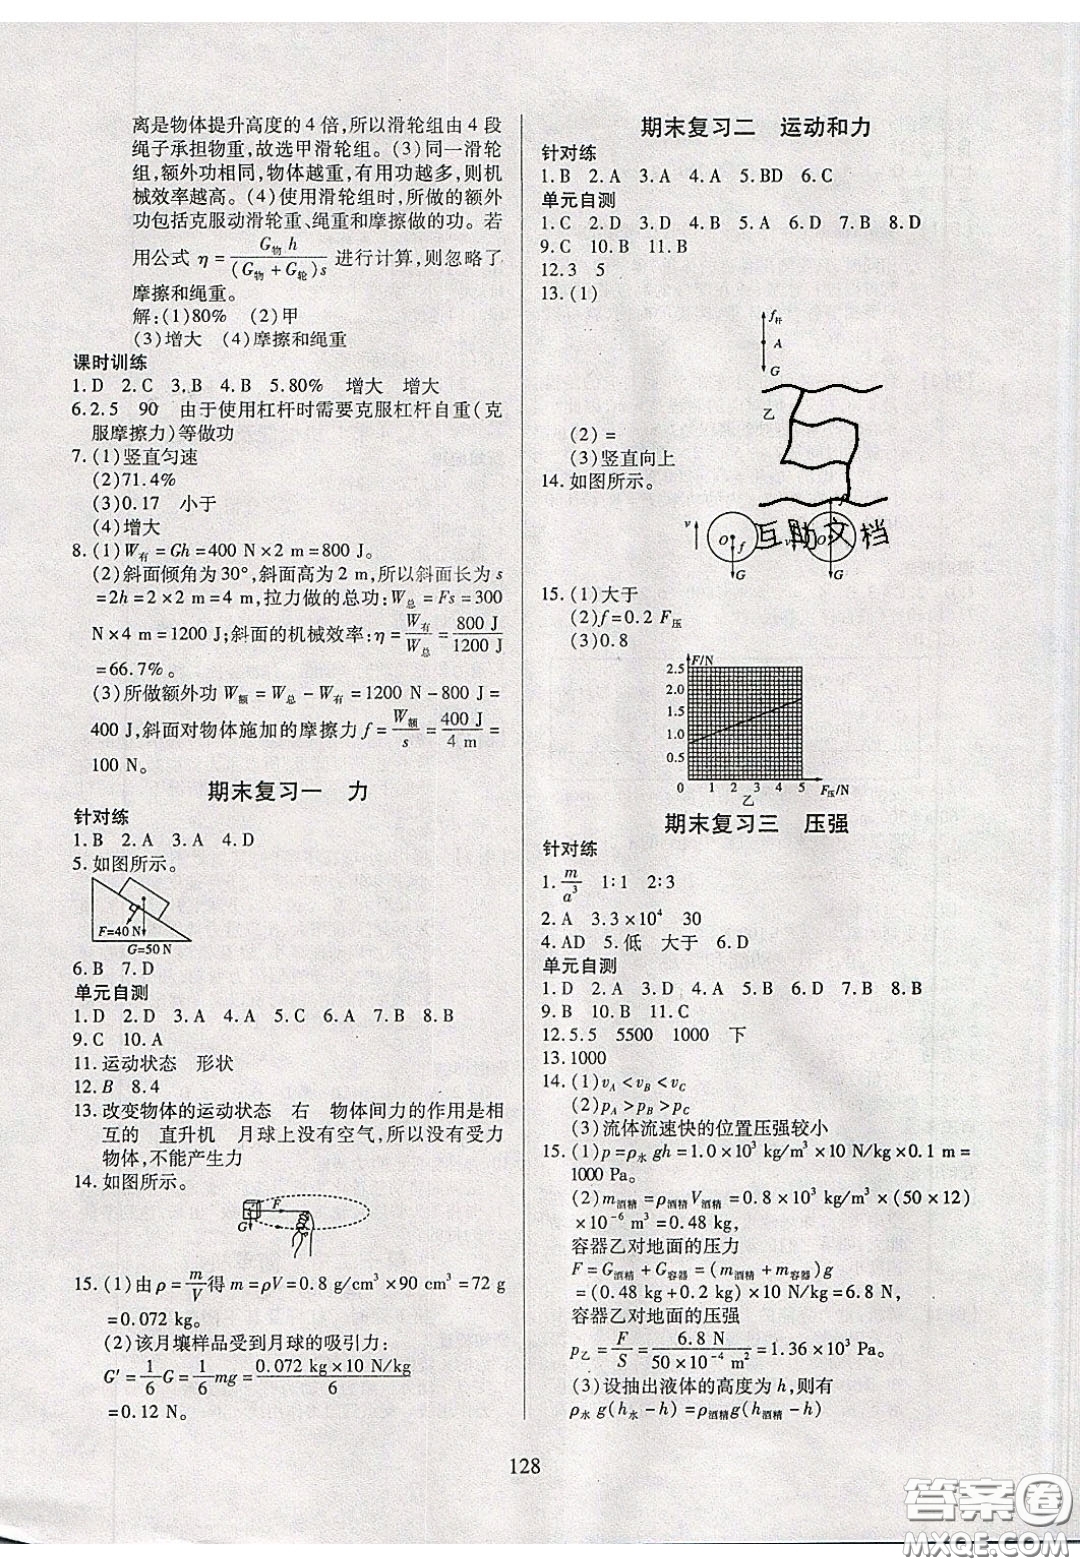 离是物体提升高度的4倍,所以滑轮组由4段
绳子承担物重,故选甲滑轮组。(3)同一滑轮
组,额外功相同,物体越重,有用功越多,则机
械效率越高。(4)使用滑轮组时,所做的额外
功包括克服动滑轮重、绳重和摩擦做的功。若
用公式 η=G物 h/(G物+G轮)s 进行计算,则忽略了
摩擦和绳重。
解:(1)80% (2)甲
(3)增大 (4)摩擦和绳重
课时训练
1.D 2.C 3.B 4.B 5.80% 增大 增大
6.2.5 90 由于使用杠杆时需要克服杠杆自重(克
服摩擦力)等做功
7.(1)竖直匀速
(2)71.4%
(3)0.17 小于
(4)增大
8.(1)W有=Gh=400 N×2 m=800 J。
(2)斜面倾角为30°,斜面高为2 m,所以斜面长为s
=2h=2×2 m=4 m,拉力做的总功:W总=Fs=300
N×4 m=1200 J;斜面的机械效率:η=W有/W总=800 J/1200 J
=66.7%。
(3)所做额外功W额=W总-W有=1200 N-800 J=
400 J,斜面对物体施加的摩擦力f=W额/s=400 J/4 m=
100 N。
期末复习一 力
针对练
1.B 2.A 3.A 4.D
5.如图所示。
F=40 N
G=50 N
6.B 7.D
单元自测
1.D 2.D 3.A 4.A 5.C 6.A 7.B 8.B
9.C 10.A
11.运动状态 形状
12.B 8.4
13.改变物体的运动状态 右 物体间力的作用是相
互的 直升机 月球上没有空气,所以没有受力
物体,不能产生力
14.如图所示。
F
G
15.(1)由ρ=m/V得m=ρV=0.8 g/cm³×90 cm³=72 g
=0.072 kg。
(2)该月壤样品受到月球的吸引力:
G′=1/6G=1/6mg=0.072 kg×10 N/kg/6
=0.12 N。
期末复习二 运动和力
针对练
1.B 2.A 3.A 4.A 5.BD 6.C
单元自测
1.C 2.D 3.D 4.B 5.A 6.D 7.B 8.D
9.C 10.B 11.B
12.3 5
13.(1)
f杆
A
G
乙
(2)=
(3)竖直向上
14.如图所示。
v O f G
互助文档
O G
15.(1)大于
(2)f=0.2 F压
(3)0.8
F/N
2.5
2.0
1.5
1.0
0.5
0 1 2 3 4 5 F压/N
乙
期末复习三 压强
针对练
1.m/a³ 1∶1 2∶3
2.A 3.3×10⁴ 30
4.AD 5.低 大于 6.D
单元自测
1.D 2.A 3.D 4.A 5.B 6.D 7.B 8.B
9.B 10.B 11.C
12.5.5 5500 1000 下
13.1000
14.(1)vA<vB<vC
(2)pA>pB>pC
(3)流体流速快的位置压强较小
15.(1)p=ρ水 gh=1.0×10³ kg/m³×10 N/kg×0.1 m=
1000 Pa。
(2)m酒精=ρ酒精V酒精=0.8×10³ kg/m³×(50×12)
×10⁻⁶ m³=0.48 kg,
容器乙对地面的压力
F=G酒精+G容器=(m酒精+m容器)g
=(0.48 kg+0.2 kg)×10 N/kg=6.8 N,
容器乙对地面的压强
p乙=F/S=6.8 N/50×10⁻⁴ m²=1.36×10³ Pa。
(3)设抽出液体的高度为h,则有
ρ水 g(h水-h)=ρ酒精g(h酒精-h)
128
答案圈
MXQE.COM